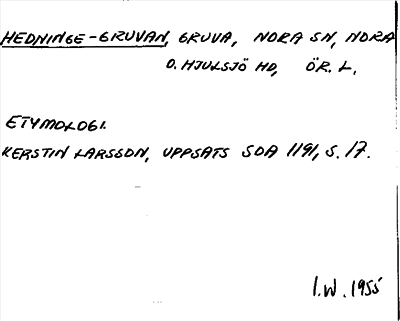 HEDNINGE-GRUVAN, GRUVA, NORA SN, NORA
O. HJULSJÖ HD, ÖR. L.
ETYMOLOGI.
KERSTIN LARSSON, UPPSATS SOA 1191, S. 17.
I.W. 1955